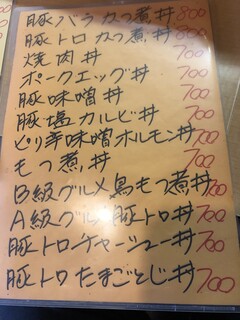 豚バラかつ煮丼 800
豚トロかつ煮丼 800
焼肉丼 700
ポークエッグ丼 700
豚味噌丼 700
豚塩カルビ丼 700
ピリ辛味噌ホルモン丼 700
もつ煮丼 700
B級グルメ鳥もつ煮丼 700
A級グルメ豚トロ丼 700
豚トロチャーシュー丼 700
豚トロたまごとじ丼 700